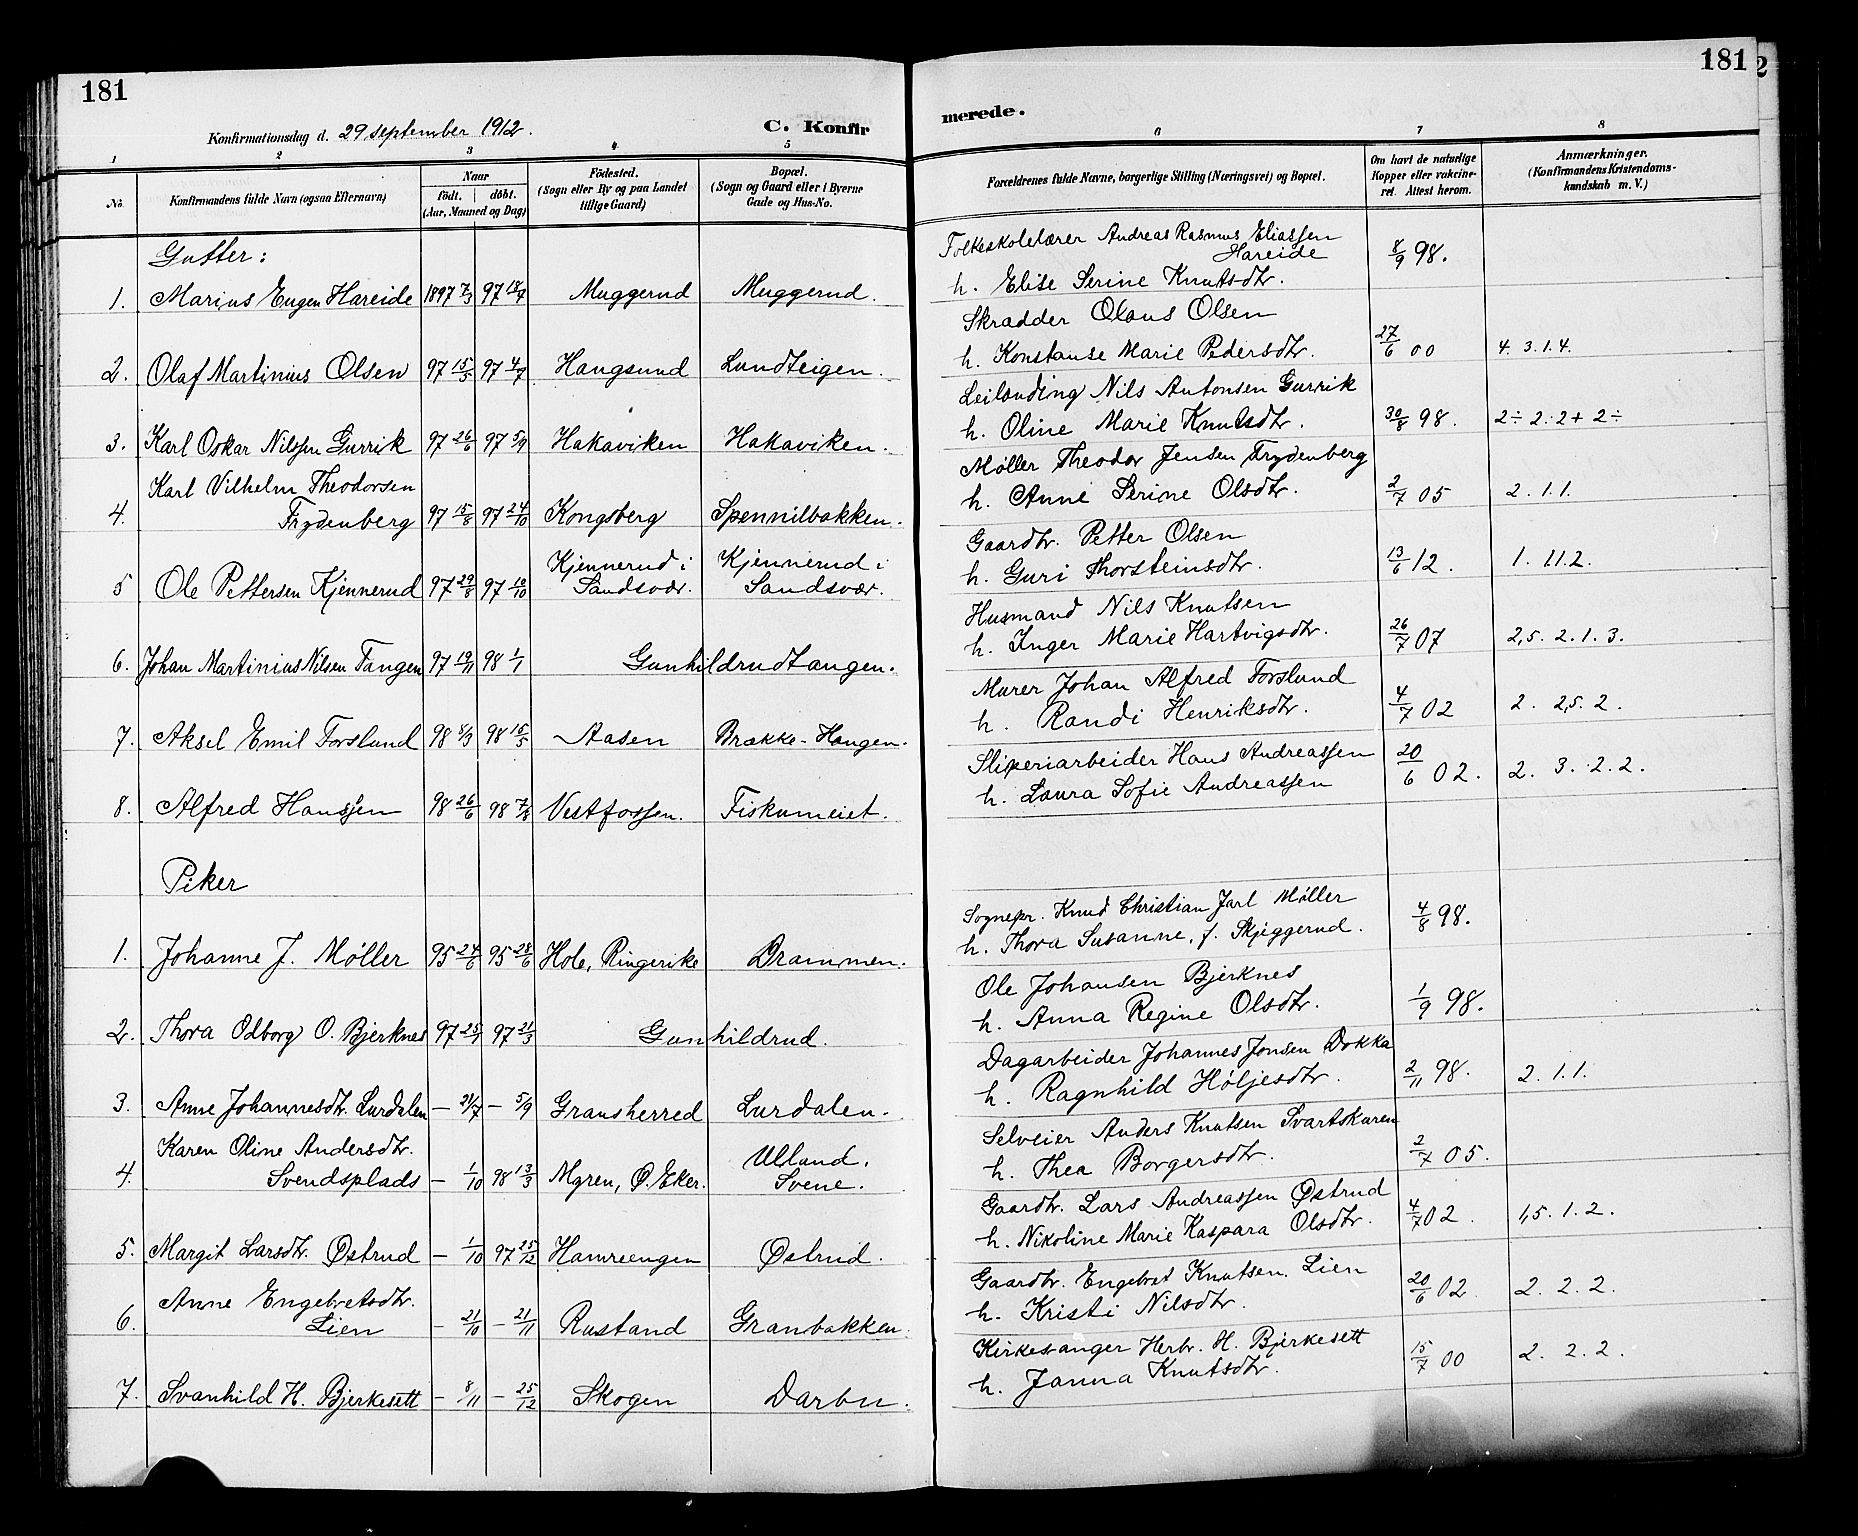 181
181
2
Konfirmationsdag d. 29 september 1912.
C. Konfir
merede.
1 2 3 4 5 6 7 8
No.
Konfirmandens fulde Navn (ogsaa Efternavn)
Naar
födt. döbt.
(Aar, Maaned og Dag)
Födested.
(Sogn eller By og paa Landet
tillige Gaard)
Bopæl.
(Sogn og Gaard eller i Byerne
Gade og Hus-No.
Forældrenes fulde Navne, borgerlige Stilling (Næringsvei) og Bopæl.
Om havt de naturlige
Kopper eller vakcine-
ret. Attest herom.
Anmærkninger.
(Konfirmandens Kristendoms-
kundskab m. V.)
Gutter:
Folkeskolelærer Andreas Rasmus Eliassen
Hareide
1. Marius Eugen Hareide 1897 7/3 97 18/4 Muggerud Muggerud. h. Elise Serine Knutsdtr. 8/9 98.
Skradder Olaus Olsen
2. Olaf Martinius Olsen 97 15/5 97 4/7 Haugsund Lundteigen. h. Konstanse Marie Pedersdtr. 27/6 00 4. 3. 1. 4.
Leilending Nils Antonsen Gurrik
3. Karl Oskar Nilssen Gurrik 97 26/6 97 5/9 Hakaviken Hakaviken. h. Oline Marie Knutsdtr. 30/8 98. 2÷ 2. 2+ 2÷
Karl Vilhelm Theodorsen
Møller Theodor Jensen Frydenberg
4. Frydenberg 97 15/8 97 24/10 Kongsberg Spennilbakken. h. Anne Serine Olsdtr. 2/7 05 2. 1. 1.
Kjennerud i Kjennerud i
Gaardbr. Petter Olsen
5 Ole Pettersen Kjennerud 97 29/8 97 10/10 Sandsvær. Sandsvær. h. Guri Thorsteinsdtr. 13/6 12. 1. 1.1. 2.
Husmand Nils Knutsen
6. Johan Martinius Nilsen Tangen 97 19/11 98 1/1 Gunhildrudtangen. h. Inger Marie Hartvigsdtr. 26/7 07 2,5. 2. 1. 3.
Murer Johan Alfred Forslund
7. Aksel Emil Forslund 98 8/3 98 15/5 Aasen Brække-Haugen. h. Randi Henriksdtr. 4/7 02 2. 2,5. 2.
Sliperiarbeider Hans Andreassen
8. Alfred Hanssen 98 26/6 98 7/8 Vestfossen. Fiskumeiet. h. Laura Sofie Andreassen 20/6 02. 2. 3. 2. 2.
Piker
Sognepr. Knud Christian Jarl Møller
1. Johanne J. Møller 95 24/6 95 28/6 Hole, Ringerike Drammen. h. Thora Susanne, f. Skjeggerud. 4/8 98.
Ole Johansen Bjerknes
2. Thora Odborg O. Bjerknes 97 25/1 97 21/3 Gunhildrud. h. Anna Regine Olsdtr. 1/9 98.
Dagarbeider Johannes Jonsen Dokka
3. Anne Johannesdtr. Lurdalen — 21/7 — 5/9 Gransherred Lurdalen. h. Ragnhild Høljesdtr. 2/11 98. 2. 1. 1.
Karen Oline Andersdtr. Ulland,
Selveier Anders Knutsen Svartskaren
4. Svendsplads — 1/10 98 13/3 Myren, Ø. Eker. Svene. h. Thea Borgersdtr. 2/7 05.
Gaardbr. Lars Andreassen Østrud
5. Margit Larsdtr. Østrud — 1/10 97 25/12 Hamreengen Østrud. h. Nikoline Marie Kaspara Olsdtr. 4/7 02. 1,5. 1. 2.
Anne Engebretsdtr.
Gaardbr. Engebret Knutsen Lien
6. Lien — 21/10 — 21/11 Rustand Granbakken. h. Kristi Nilsdtr. 20/6 02. 2. 2. 2.
Kirkesanger Herbr. H. Bjerkesett
7. Svanhild H. Bjerkesett — 8/11 — 25/12 Skogen Darbu. h. Janna Knutsdtr. 15/7 00 2. 2. 2.